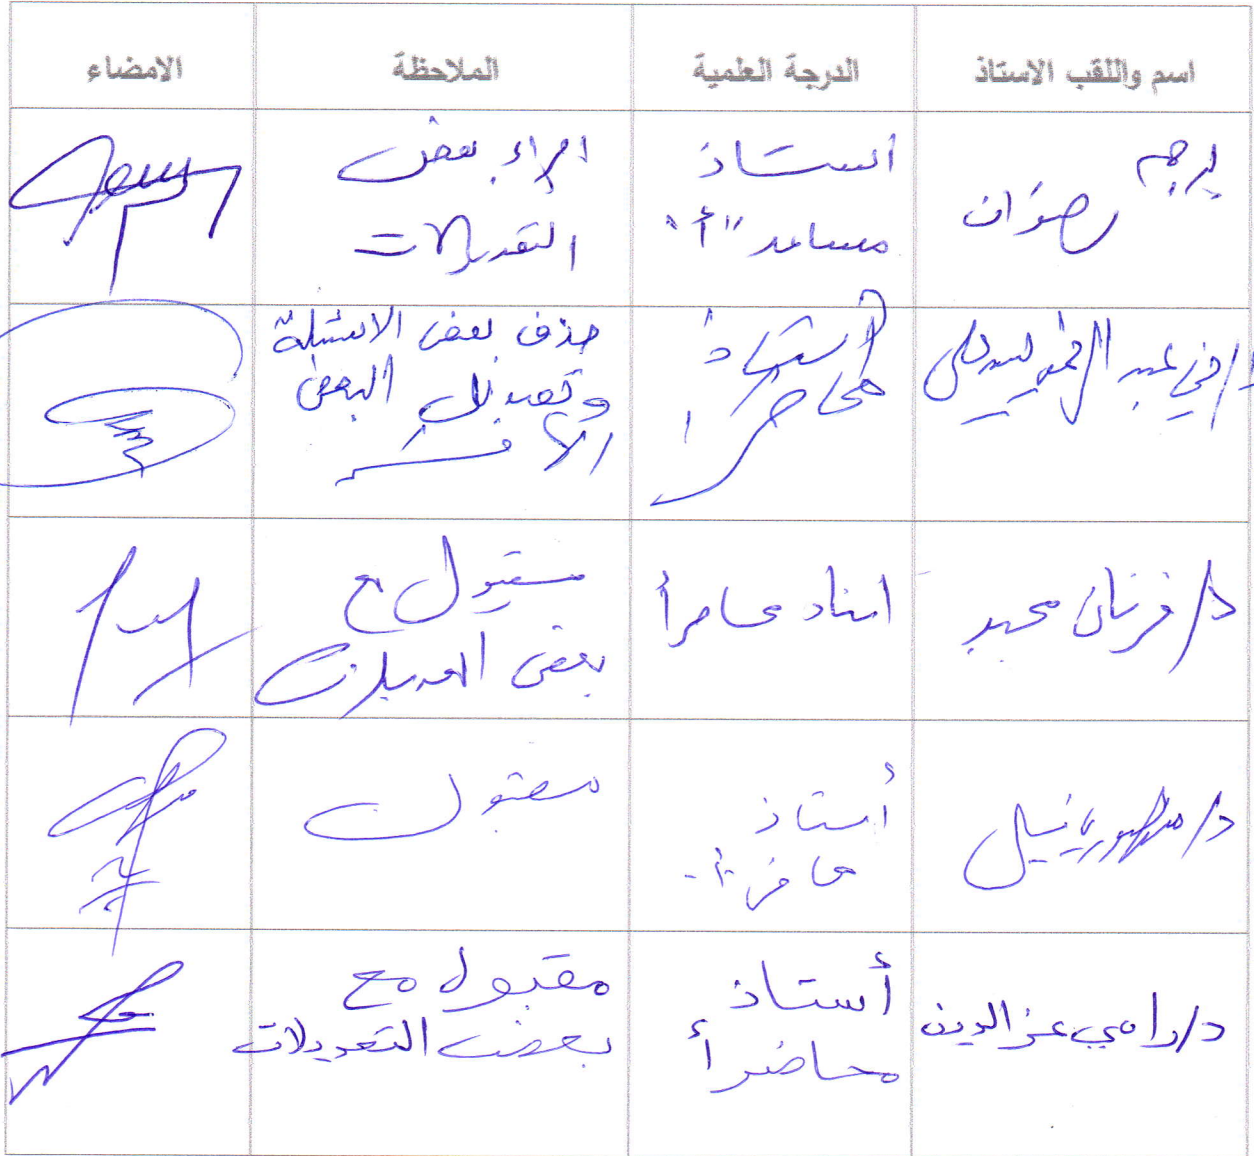 اسم واللقب الاستاذ	الدرجة العلمية	الملاحظة	الامضاء
رضوان
استاذ
مساعد "أ"
اجراء بعض
التعديلات
عبد
أستاذ
محاضر أ
حذف بعض الاسئلة
وتعديل البعض
الآخر
د/ محمد
استاذ محاضر أ
مقبول مع
بعض التعديلات
د/
أستاذ
محاضر "أ"
مقبول
د/رامي عز الدين
أستاذ
محاضر أ
مقبول مع
بعض التعديلات